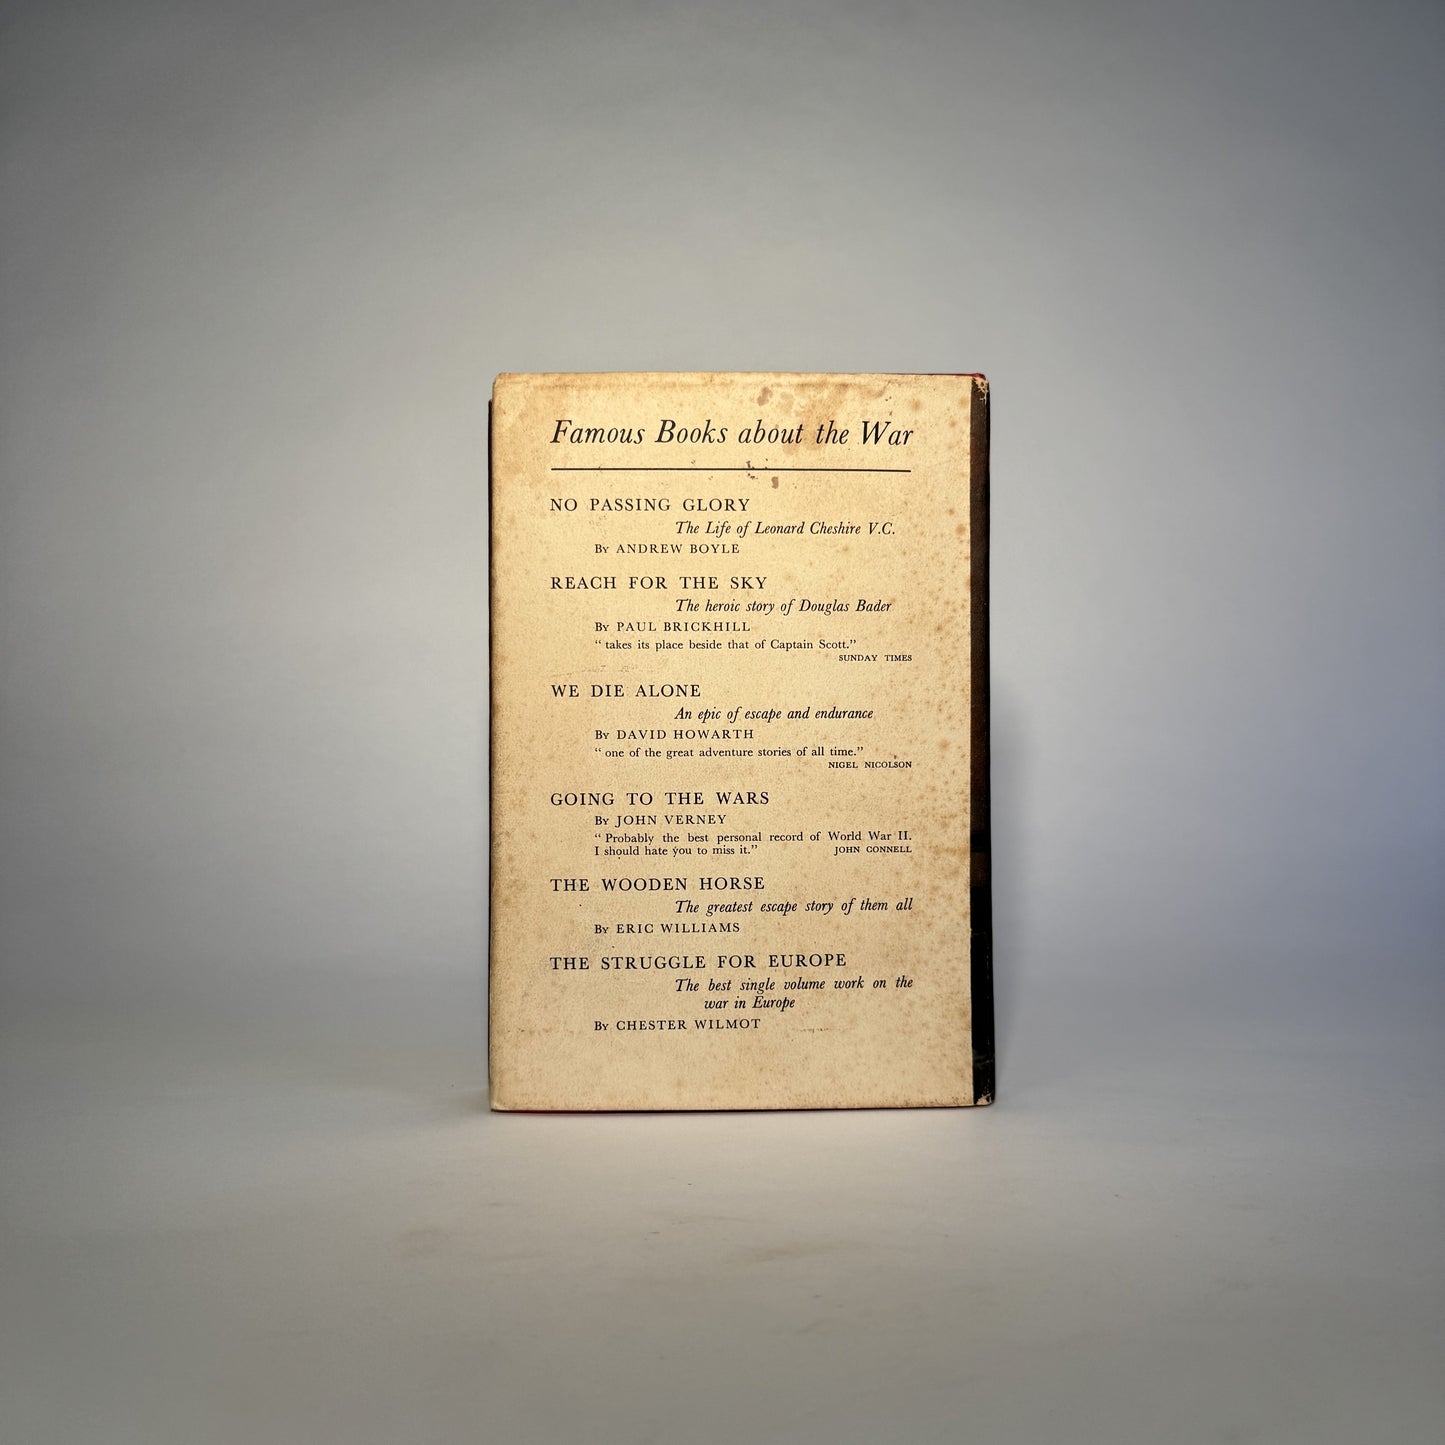 Famous Books about the War
NO PASSING GLORY
The Life of Leonard Cheshire V.C.
By ANDREW BOYLE
REACH FOR THE SKY
The heroic story of Douglas Bader
By PAUL BRICKHILL
“ takes its place beside that of Captain Scott.”
SUNDAY TIMES
WE DIE ALONE
An epic of escape and endurance
By DAVID HOWARTH
“ one of the great adventure stories of all time.”
NIGEL NICOLSON
GOING TO THE WARS
By JOHN VERNEY
“ Probably the best personal record of World War II.
I should hate you to miss it.” JOHN CONNELL
THE WOODEN HORSE
The greatest escape story of them all
By ERIC WILLIAMS
THE STRUGGLE FOR EUROPE
The best single volume work on the
war in Europe
By CHESTER WILMOT